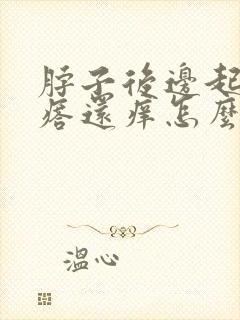 脖子後邊起
痞還痒怎麼
溫心